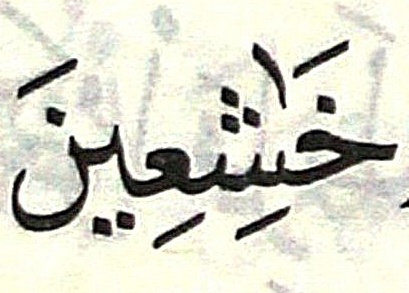 خَـٰشِعِينَ